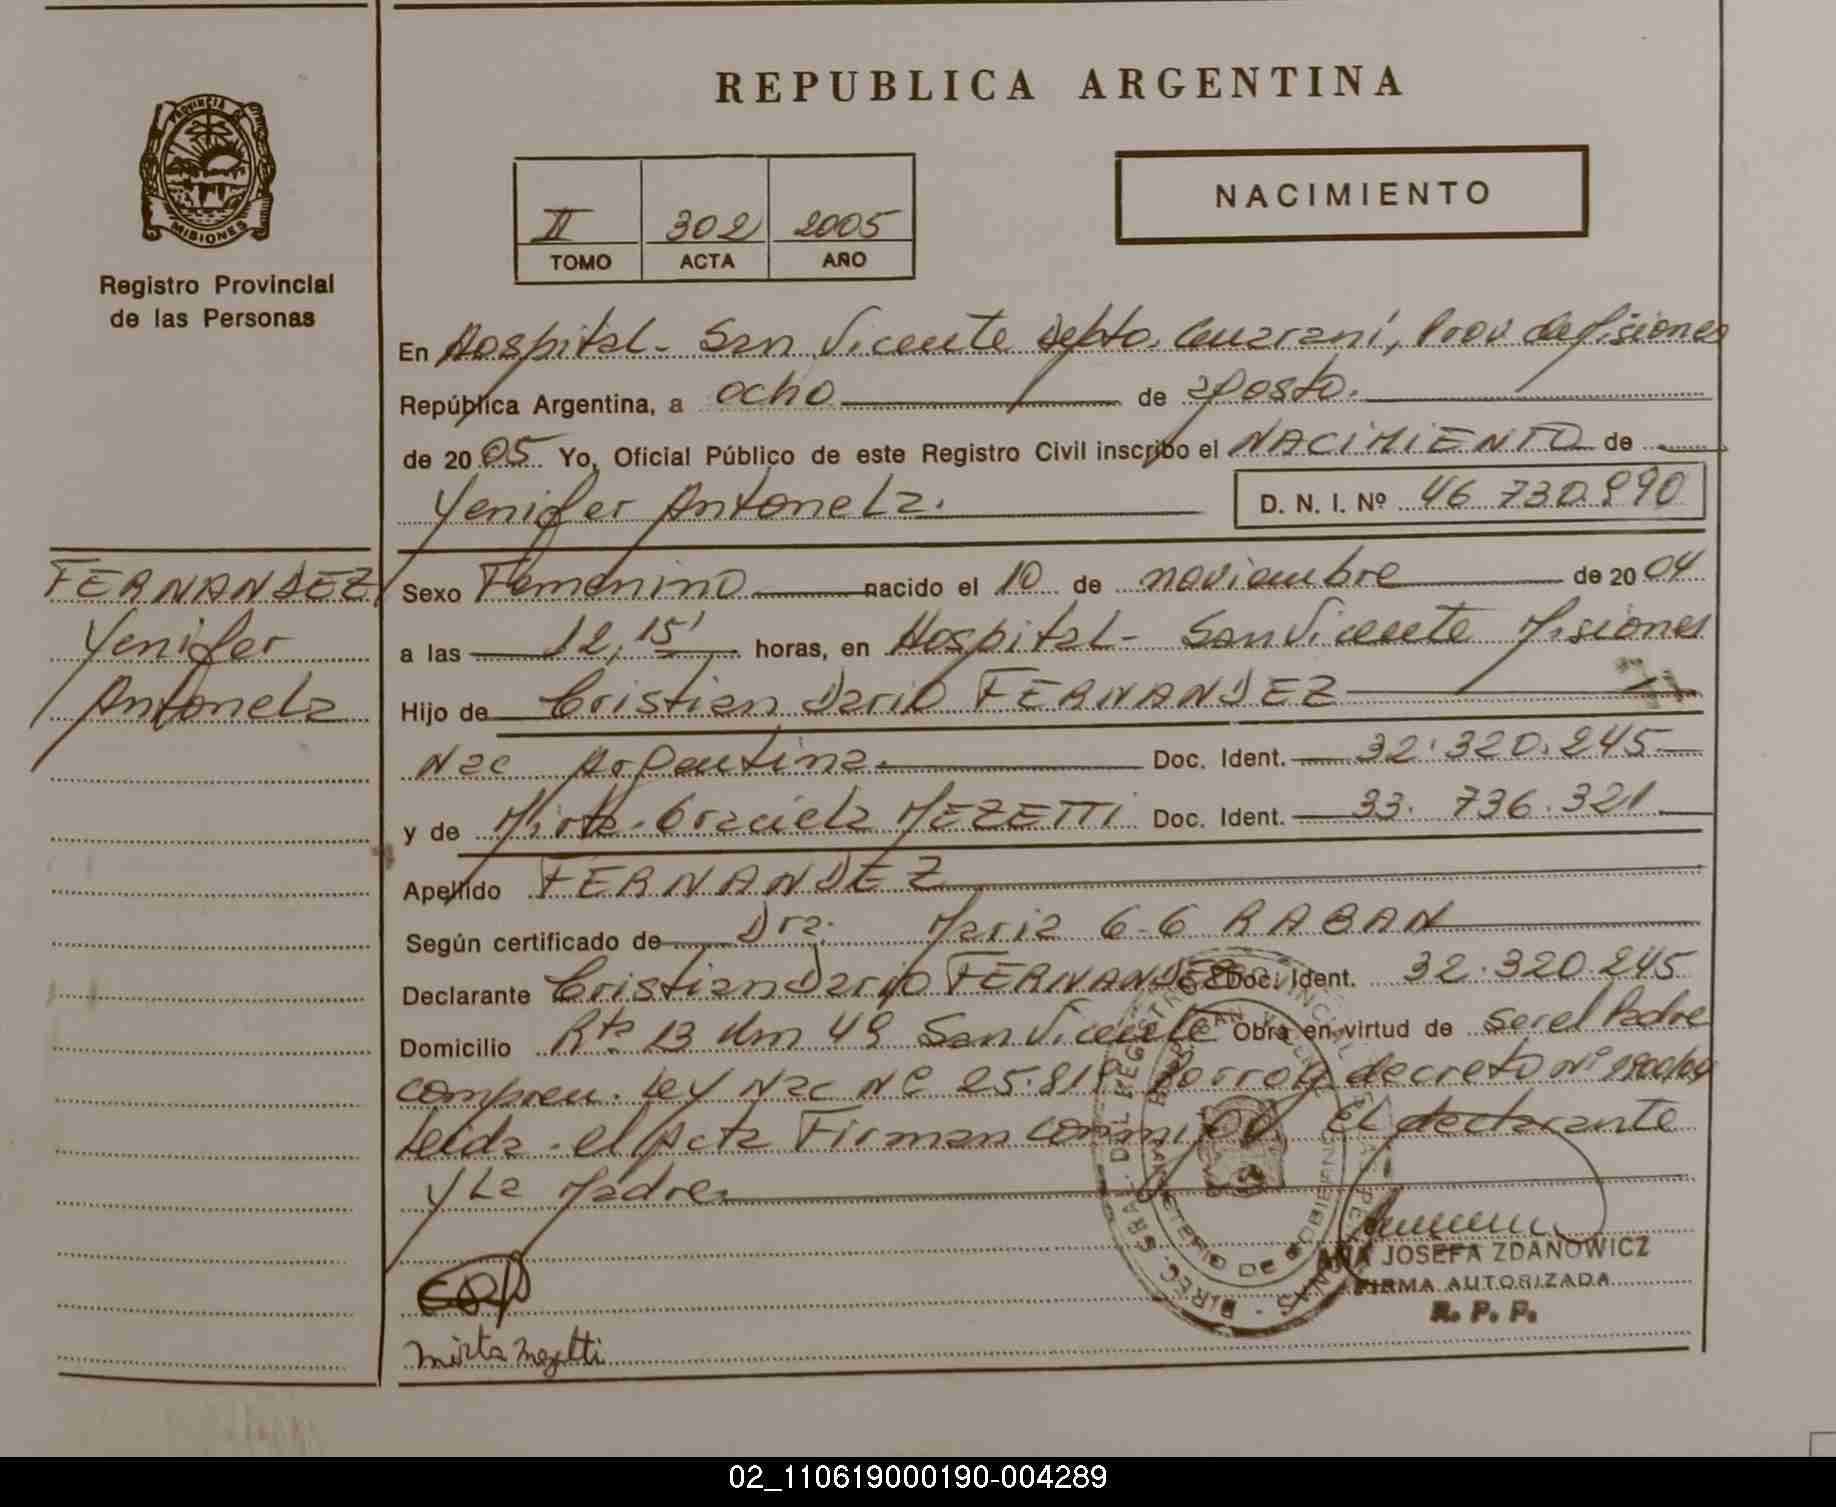 REPUBLICA ARGENTINA
PROVINCIA DE MISIONES
Registro Provincial
de las Personas
II 302 2005
TOMO ACTA AÑO
NACIMIENTO
En Hospital - San Vicente Depto. Guaraní, Prov de Misiones
República Argentina, a ocho de agosto.
de 20 05 Yo, Oficial Público de este Registro Civil inscribo el NACIMIENTO de
Yenifer Antonela.
D. N. I. Nº 46 730.990
FERNANDEZ
Yenifer
Antonela
Sexo Femenino nacido el 10 de noviembre de 20 04
a las 12,15' horas, en Hospital - San Vicente Misiones
Hijo de Cristian Dario FERNANDEZ
Nac Argentina. Doc. Ident. 32.320.245
y de Mirta Graciela MEZETTI Doc. Ident. 33.736.321
Apellido FERNANDEZ
Según certificado de Dra. Maria G. G RABAN
Declarante Cristian Dario FERNANDEZ Doc. Ident. 32.320.245
Domicilio Rta 13 Km 49 San Vicente Obra en virtud de ser el Padre
compren. Ley Nac Nº 25.819 Porrog decreto Nº
Leida el Acta Firman conmigo El declarante
y La Madre.
Mirta Mezetti
ANA JOSEFA ZDANOWICZ
FIRMA AUTORIZADA
R. P. P.
02_110619000190-004289